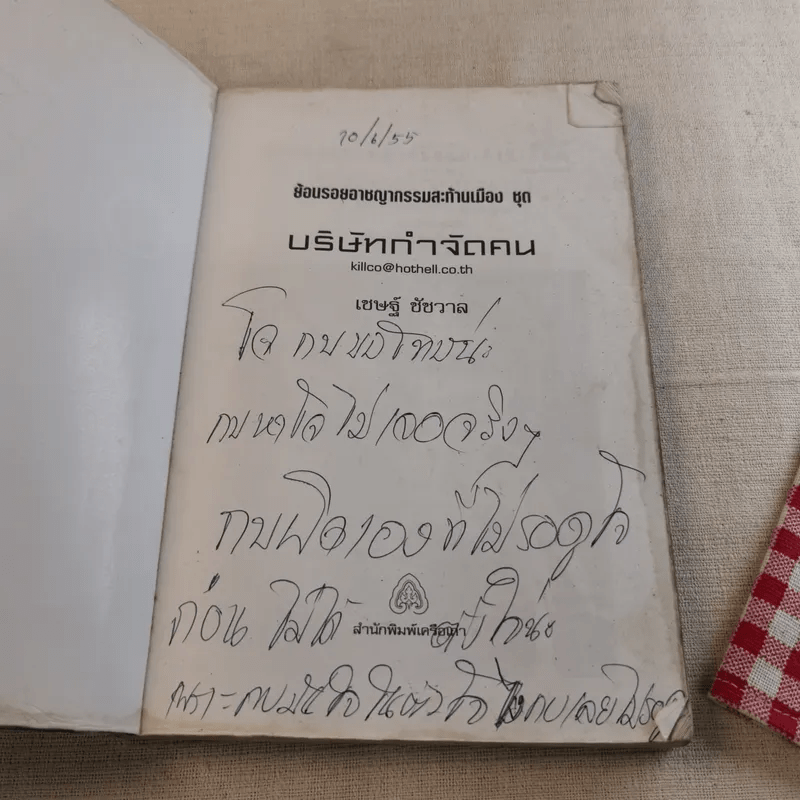 10/6/55
ย้อนรอยอาชญากรรมสะท้านเมือง ชุด
บริษัทกำจัดคน
killco@hothell.co.th
เชษฐ์ ชัชวาล
โจ กบขอโทษน่ะ
กบหาโจไม่เจอจริงๆ
กบผิดเองที่ไม่รอดูโจ
ก่อน ไม่ได้ นะ
สำนักพิมพ์เครือเถา
เพราะกบมั่นใจในตัวโจ กบเลยไม่